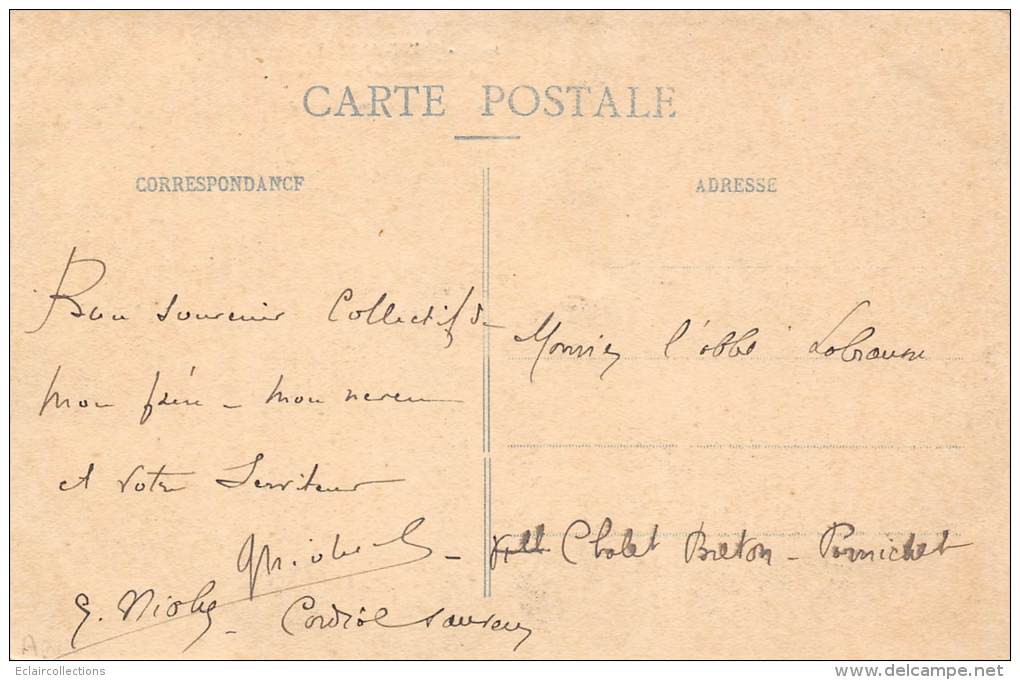 CARTE POSTALE
CORRESPONDANCE
ADRESSE
Bon souvenir Collectif de
mon frère - mon neveu
et votre Serviteur
G. Violy - Cordial souvenir
Monsieur l'abbé Labrousse
Chalet Breton - Pornichet
Eclaircollections
www.delcampe.net